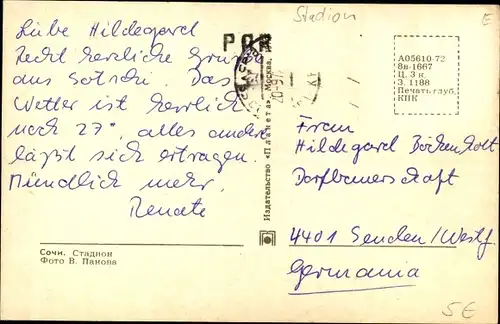 Liebe Hildegard
Recht herzliche Grüße
aus Sotschi. Das
Wetter ist herrlich
noch 27°, alles andere
läßt sich ertragen.
Mündlich mehr.
Renate
Сочи. Стадион
Фото В. Панова
Издательство «Планета». Москва.
PAR
Stadion
E
А05610-72
8в-1667
Ц. 3 к.
З. 1188
Печать глуб.
КПК
Frau
Hildegard
Dorfbauerschaft
4401 Senden/Westf.
Germania
5E